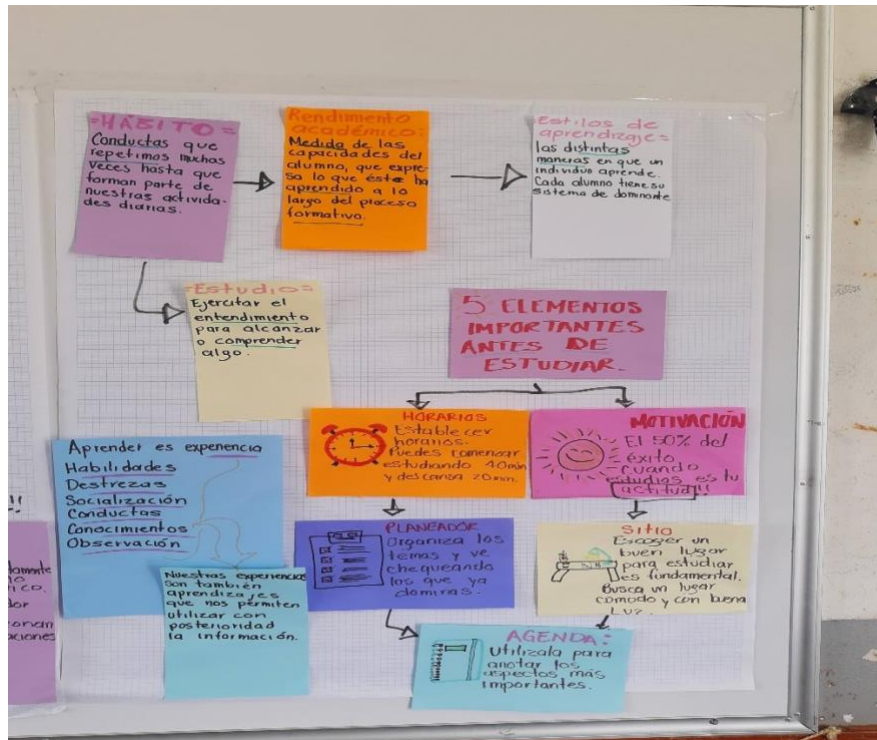 =HÁBITO=
Conductas que
repetimos muchas
veces hasta que
forman parte de
nuestras activida-
des diarias.
Rendimiento
académico:
Medida de las
capacidades del
alumno, que expre-
sa lo que éste ha
aprendido a lo
largo del proceso
formativo.
=Estilos de
aprendizaje=
las distintas
maneras en que un
individuo aprende.
Cada alumno tiene su
sistema de dominante
=Estudio=
Ejercitar el
entendimiento
para alcanzar
o comprender
algo.
5 ELEMENTOS
IMPORTANTES
ANTES DE
ESTUDIAR.
HORARIOS
Establecer
horarios.
Puedes comenzar
estudiando 40min
y descansa 20min.
MOTIVACIÓN
El 50% del
éxito
cuando
estudias es tu
actitud!!
Aprender es experiencia
Habilidades
Destrezas
Socialización
Conductas
Conocimientos
Observación
PLANEADOR
Organiza los
temas y ve
chequeando
los que ya
dominas.
SITIO
Escoger un
buen lugar
para estudiar
es fundamental.
Busca un lugar
comodo y con buena
luz.
Nuestras experiencias
son también
aprendizajes
que nos permiten
utilizar con
posterioridad
la información.
AGENDA:
Utilízala para
anotar los
aspectos más
importantes.